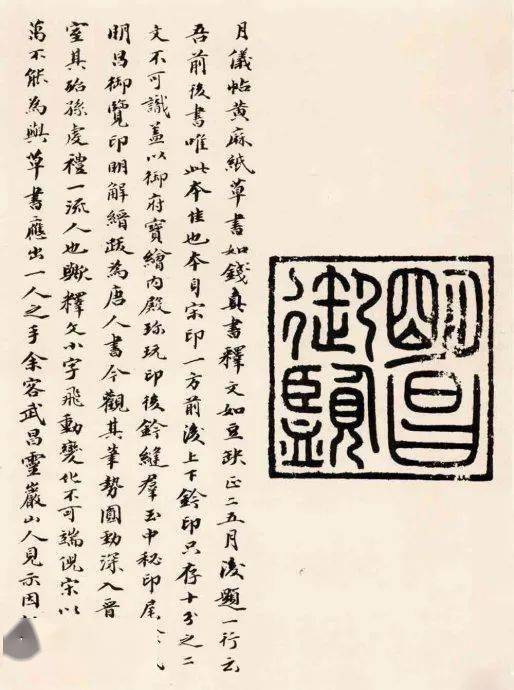 明昌
御覽
月儀帖黄麻紙草書如錢真書釋文如豆缺正二五月後題一行云
吾前後書唯此本佳也本自宋印一方前後上下鈐印只存十分之二
文不可識蓋以御府寶繪内殿珎玩印後鈐縫羣玉中秘印尾
明昌御覽印明解縉跋為唐人書今觀其筆勢圓勁深入晉
室其殆孫虔禮一流人也歟釋文小字飛動變化不可端倪宋以
萬不能為與草書應出一人之手余客武昌靈巖山人見示因